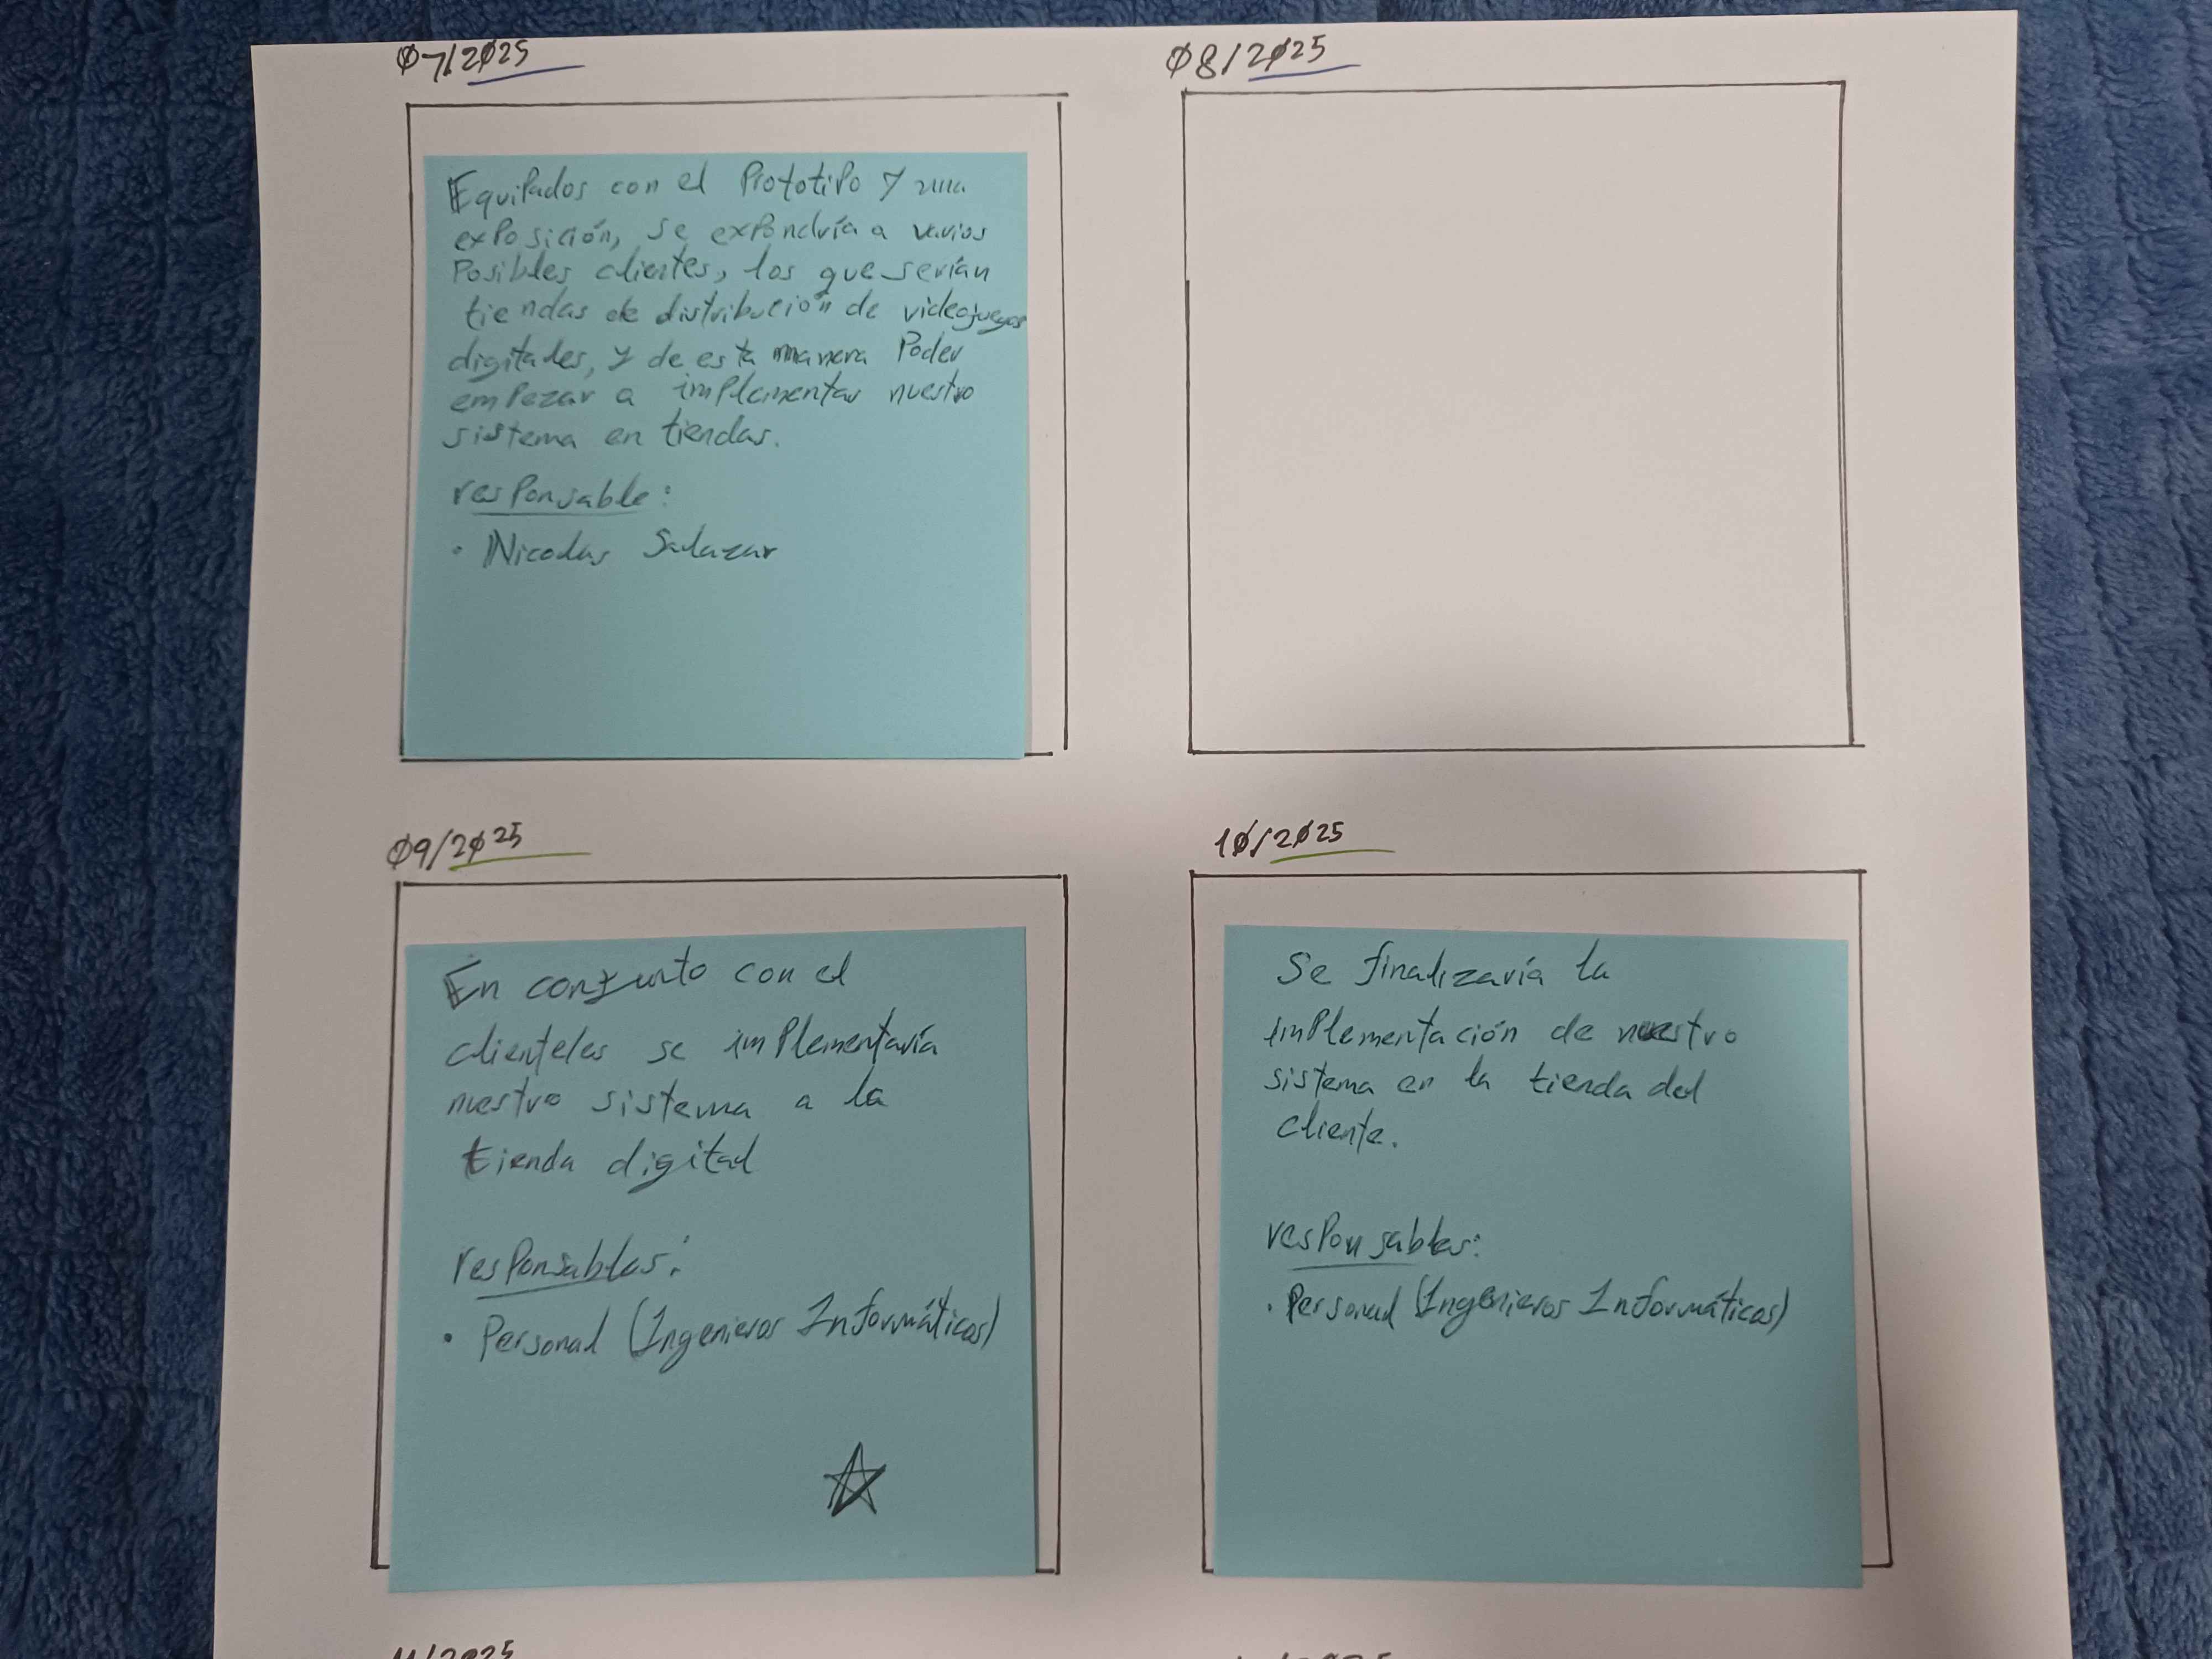 07/2025
Equipados con el Prototipo y una
exposición, se expondría a varios
Posibles clientes, los que serían
tiendas de distribución de videojuegos
digitales, y de esta manera Poder
empezar a implementar nuestro
sistema en tiendas.
responsable:
• Nicolas Salazar
08/2025
09/2025
En conjunto con el
clienteles se implementaría
nuestro sistema a la
tienda digital
responsables:
• Personal (Ingenieros Informáticos)
10/2025
Se finalizaría la
implementación de nuestro
sistema en la tienda del
cliente.
responsables:
• Personal (Ingenieros Informáticos)
11/2025